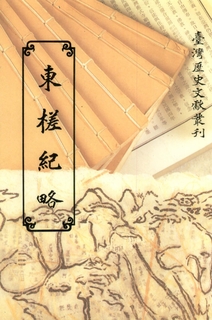 臺灣歷史文獻叢刊
東槎紀略